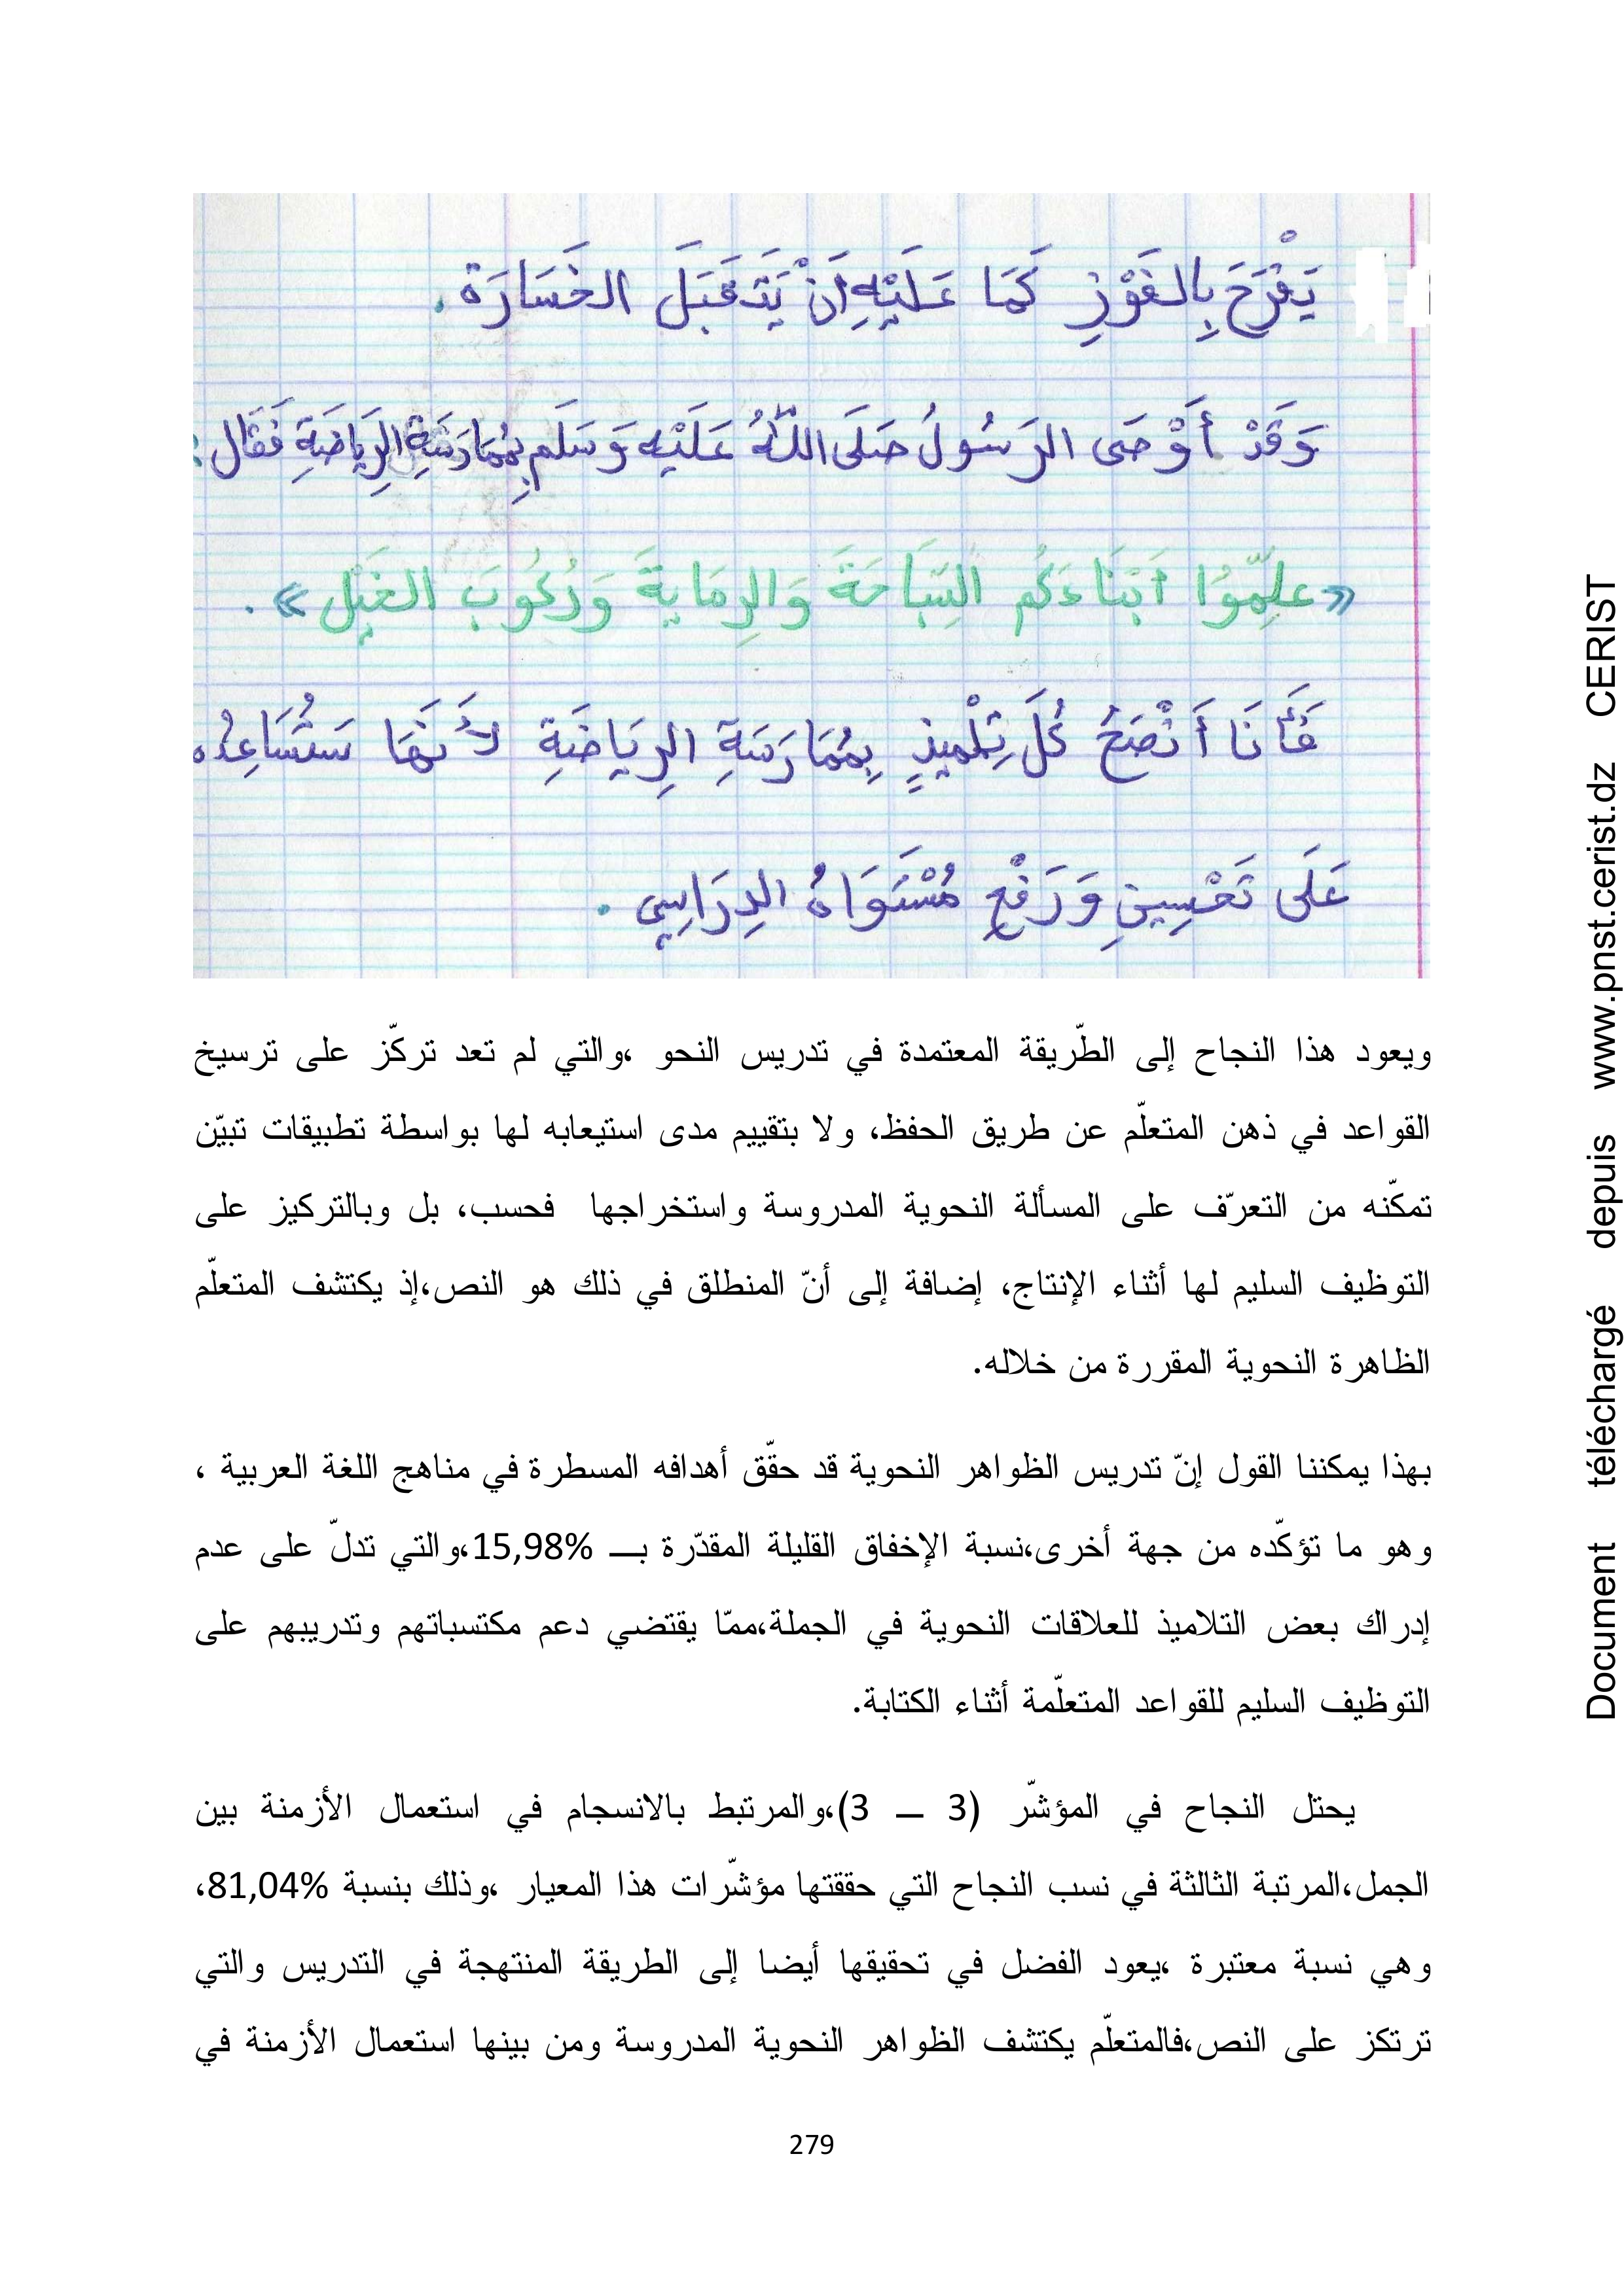 يَفْرَحَ بِالفَوْزِ كَمَا عَلَيْهِ أَنْ يَتَقَبَلَ الخَسَارَة.
وَقَدْ أَوْصَى الرَسُولُ صَلَى اللّٰهُ عَلَيْهِ وَسَلَم بِمُمَارَسَةِ الرِيَاضَةِ فَقَال :
«علِّمُوا أَبْنَاءَكُم السِبَاحَةَ وَالرِمَايةَ وَرُكُوبَ الخَيْل».
فَأَنَا أَنْصَحُ كُلَ تِلْمِيذٍ بِمُمَارَسَةِ الرِيَاضَةِ لأَنَهَا سَتُسَاعِدُه
عَلَى تَحْسِينِ وَرَفْعِ مُسْتَوَاهُ الدِرَاسِي.
ويعود هذا النجاح إلى الطّريقة المعتمدة في تدريس النحو ،والتي لم تعد تركّز على ترسيخ
القواعد في ذهن المتعلّم عن طريق الحفظ، ولا بتقييم مدى استيعابه لها بواسطة تطبيقات تبيّن
تمكّنه من التعرّف على المسألة النحوية المدروسة واستخراجها فحسب، بل وبالتركيز على
التوظيف السليم لها أثناء الإنتاج، إضافة إلى أنّ المنطلق في ذلك هو النص،إذ يكتشف المتعلّم
الظاهرة النحوية المقررة من خلاله.
بهذا يمكننا القول إنّ تدريس الظواهر النحوية قد حقّق أهدافه المسطرة في مناهج اللغة العربية ،
وهو ما تؤكّده من جهة أخرى،نسبة الإخفاق القليلة المقدّرة بـــ 15,98%،والتي تدلّ على عدم
إدراك بعض التلاميذ للعلاقات النحوية في الجملة،ممّا يقتضي دعم مكتسباتهم وتدريبهم على
التوظيف السليم للقواعد المتعلّمة أثناء الكتابة.
يحتل النجاح في المؤشّر (3 ـــ 3)،والمرتبط بالانسجام في استعمال الأزمنة بين
الجمل،المرتبة الثالثة في نسب النجاح التي حققتها مؤشّرات هذا المعيار ،وذلك بنسبة 81,04%،
وهي نسبة معتبرة ،يعود الفضل في تحقيقها أيضا إلى الطريقة المنتهجة في التدريس والتي
ترتكز على النص،فالمتعلّم يكتشف الظواهر النحوية المدروسة ومن بينها استعمال الأزمنة في
279
Document téléchargé depuis www.pnst.cerist.dz CERIST